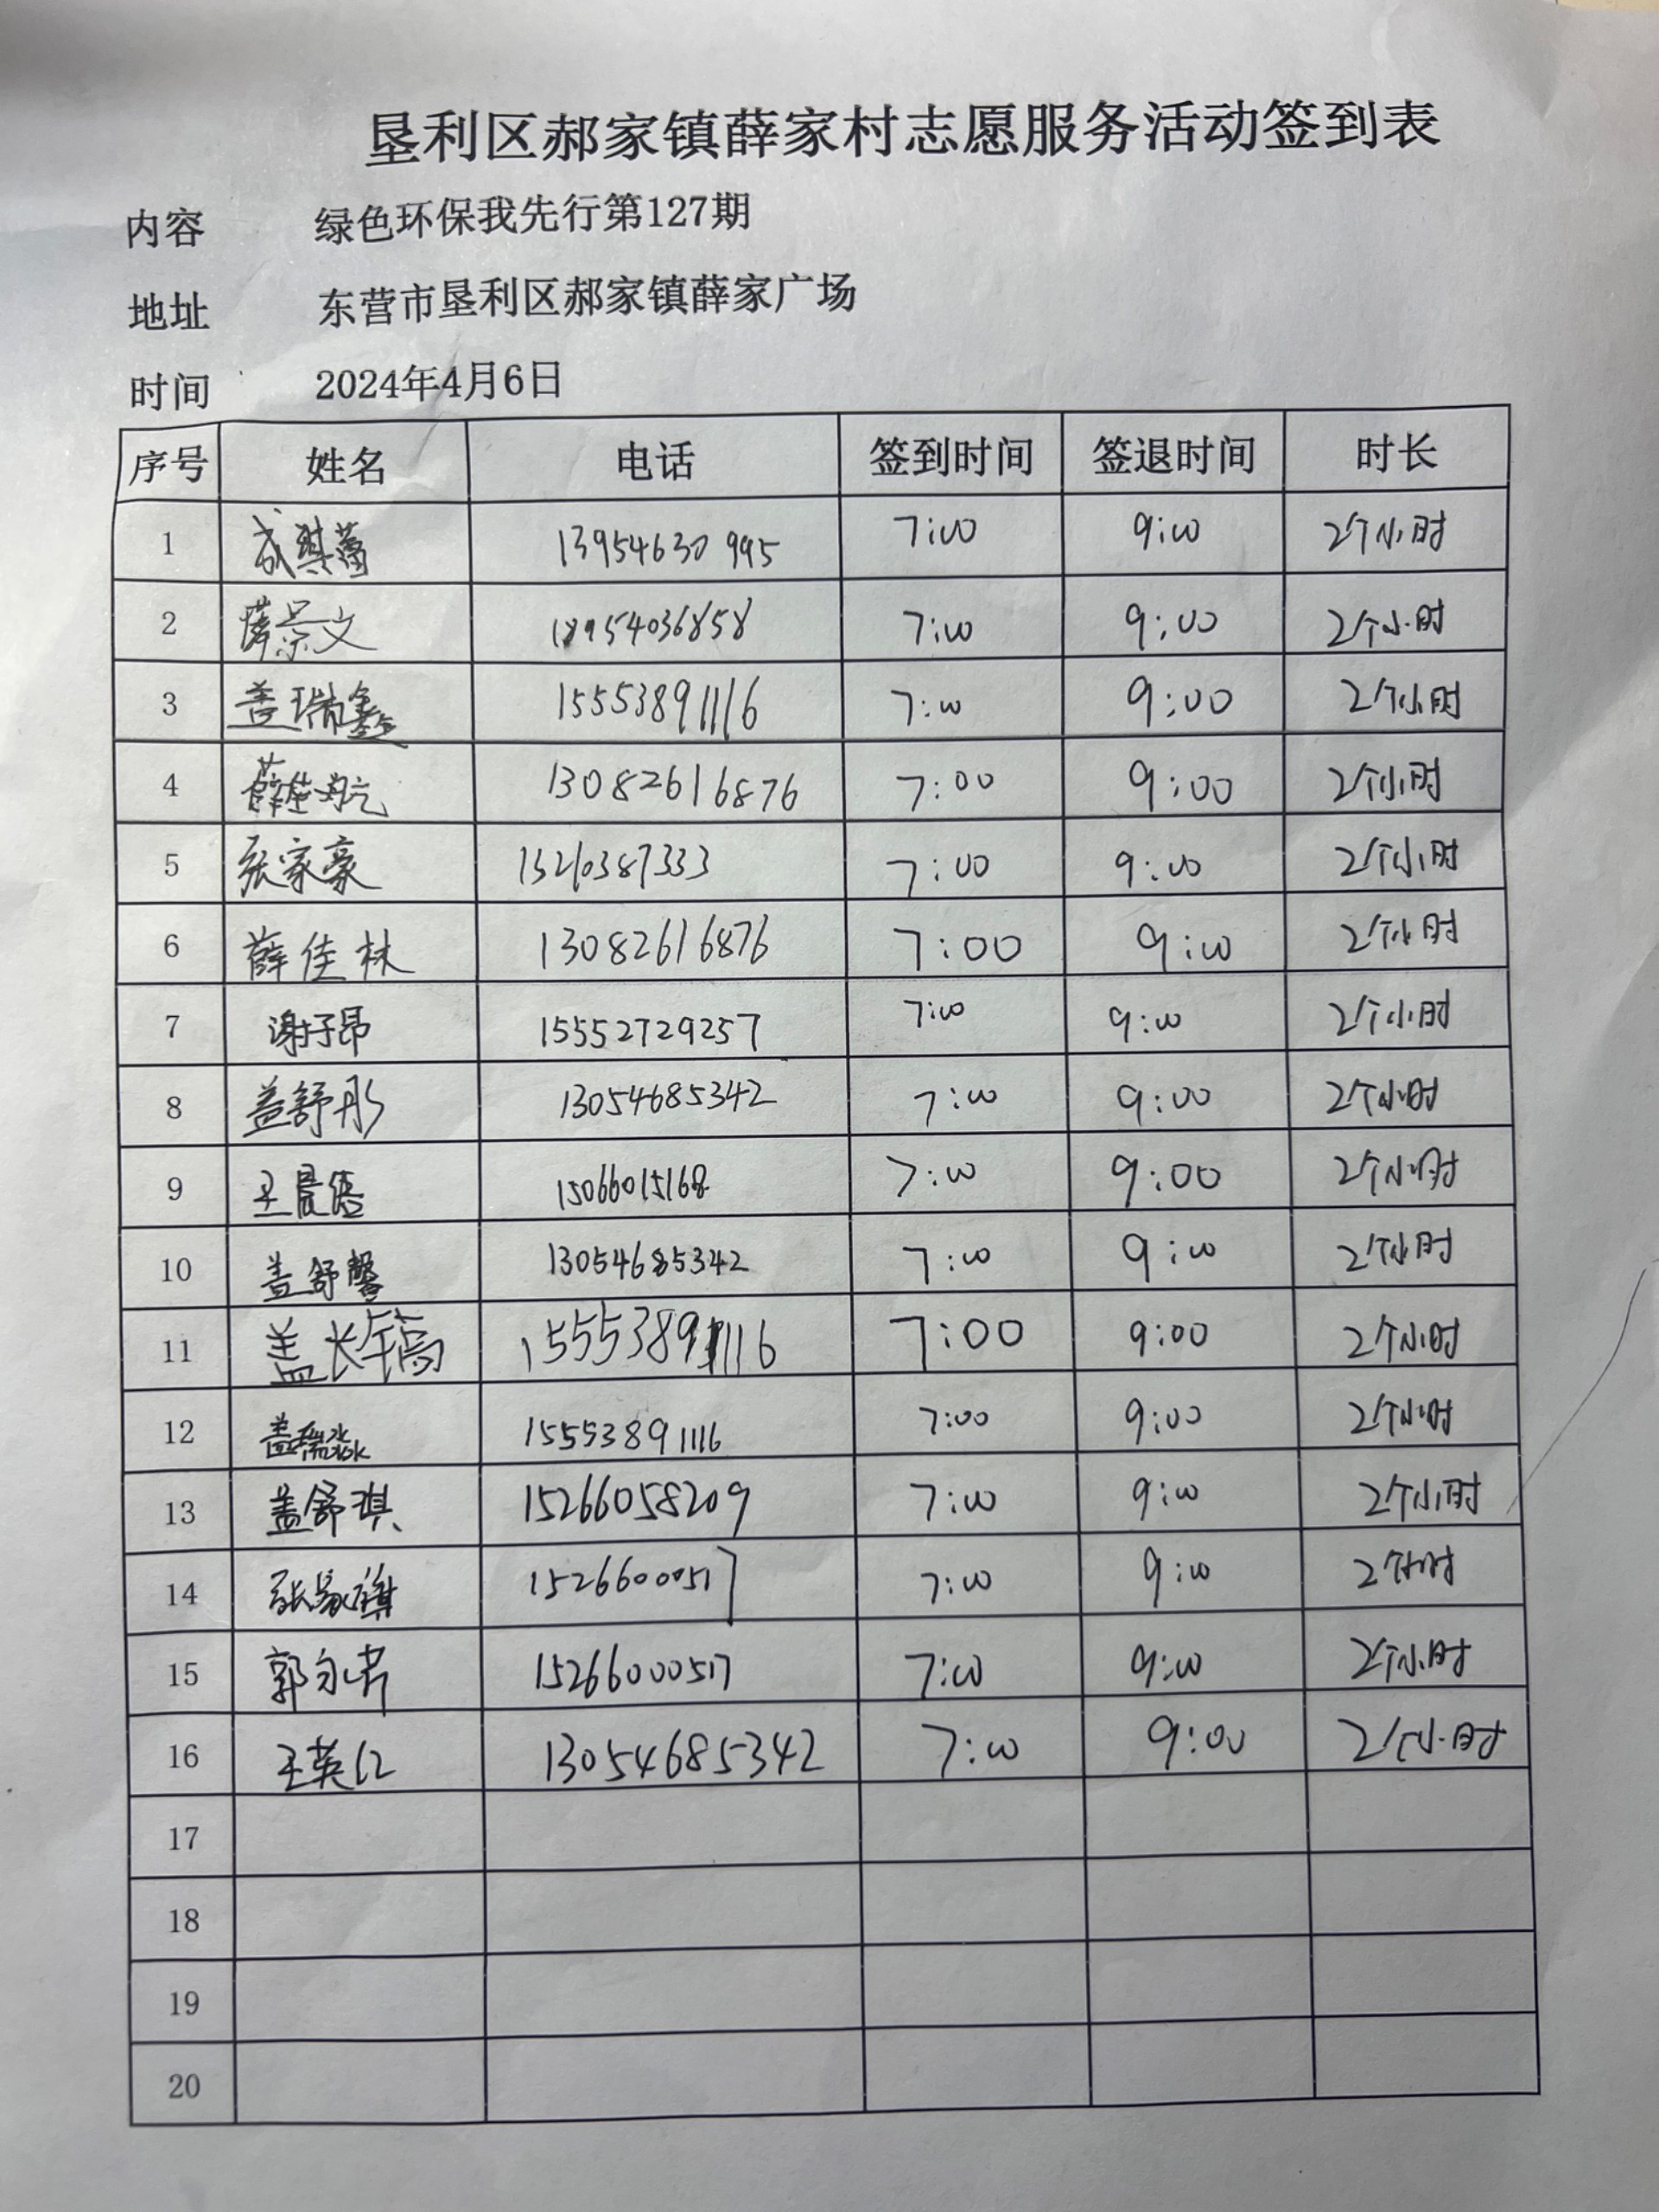 垦利区郝家镇薛家村志愿服务活动签到表
内容 绿色环保我先行第127期
地址 东营市垦利区郝家镇薛家广场
时间 2024年4月6日
序号 姓名 电话 签到时间 签退时间 时长
1 成琪 13954630995 7:00 9:00 2个小时
2 薛景文 18954036858 7:00 9:00 2个小时
3 盖瑞鑫 15553891116 7:00 9:00 2个小时
4 薛佳 13082616876 7:00 9:00 2个小时
5 张家豪 7:00 9:00 2个小时
6 薛佳林 13082616876 7:00 9:00 2个小时
7 谢子昂 15552729257 7:00 9:00 2个小时
8 盖舒彤 13054685342 7:00 9:00 2个小时
9 王晨 15066015168 7:00 9:00 2个小时
10 盖舒馨 13054685342 7:00 9:00 2个小时
11 盖长镐 15553891116 7:00 9:00 2个小时
12 盖瑞淼 15553891116 7:00 9:00 2个小时
13 盖舒琪 15266058209 7:00 9:00 2个小时
14 张家旗 15266000517 7:00 9:00 2个小时
15 郭 15266000517 7:00 9:00 2个小时
16 王英 13054685342 7:00 9:00 2个小时
17
18
19
20